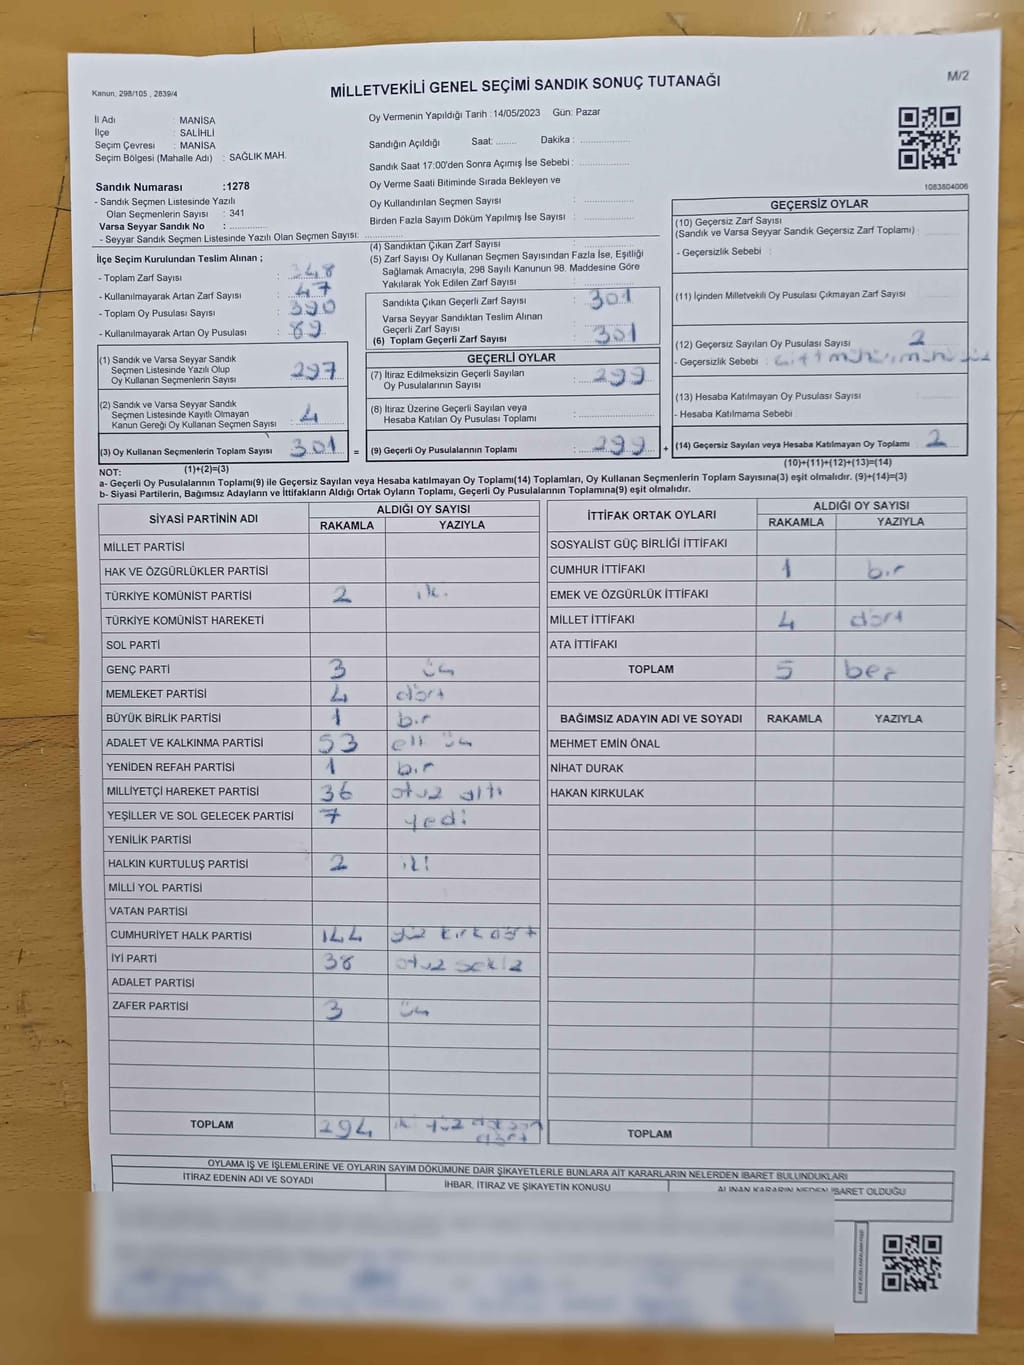 MİLLETVEKİLİ GENEL SEÇİMİ SANDIK SONUÇ TUTANAĞI
M/2
Kanun, 298/105 , 2839/4
İl Adı : MANİSA
İlçe : SALİHLİ
Seçim Çevresi : MANİSA
Seçim Bölgesi (Mahalle Adı) : SAĞLIK MAH.
Oy Vermenin Yapıldığı Tarih :14/05/2023 Gün: Pazar
Sandığın Açıldığı Saat: Dakika :
Sandık Saat 17:00'den Sonra Açımış İse Sebebi :
Oy Verme Saati Bitiminde Sırada Bekleyen ve
Oy Kullandırılan Seçmen Sayısı :
Birden Fazla Sayım Döküm Yapılmış İse Sayısı :
1083804006
Sandık Numarası :1278
- Sandık Seçmen Listesinde Yazılı
Olan Seçmenlerin Sayısı : 341
Varsa Seyyar Sandık No :
- Seyyar Sandık Seçmen Listesinde Yazılı Olan Seçmen Sayısı:
İlçe Seçim Kurulundan Teslim Alınan ;
- Toplam Zarf Sayısı : 348
- Kullanılmayarak Artan Zarf Sayısı : 47
- Toplam Oy Pusulası Sayısı : 390
- Kullanılmayarak Artan Oy Pusulası : 89
(1) Sandık ve Varsa Seyyar Sandık
Seçmen Listesinde Yazılı Olup
Oy Kullanan Seçmenlerin Sayısı : 297
(2) Sandık ve Varsa Seyyar Sandık
Seçmen Listesinde Kayıtlı Olmayan
Kanun Gereği Oy Kullanan Seçmen Sayısı : 4
(3) Oy Kullanan Seçmenlerin Toplam Sayısı : 301
(1)+(2)=(3)
(4) Sandıktan Çıkan Zarf Sayısı :
(5) Zarf Sayısı Oy Kullanan Seçmen Sayısından Fazla İse, Eşitliği
Sağlamak Amacıyla, 298 Sayılı Kanunun 98. Maddesine Göre
Yakılarak Yok Edilen Zarf Sayısı :
Sandıkta Çıkan Geçerli Zarf Sayısı : 301
Varsa Seyyar Sandıktan Teslim Alınan
Geçerli Zarf Sayısı :
(6) Toplam Geçerli Zarf Sayısı : 301
GEÇERLİ OYLAR
(7) İtiraz Edilmeksizin Geçerli Sayılan
Oy Pusulalarının Sayısı : 299
(8) İtiraz Üzerine Geçerli Sayılan veya
Hesaba Katılan Oy Pusulası Toplamı :
= (9) Geçerli Oy Pusulalarının Toplamı : 299 +
GEÇERSİZ OYLAR
(10) Geçersiz Zarf Sayısı
(Sandık ve Varsa Seyyar Sandık Geçersiz Zarf Toplamı) :
- Geçersizlik Sebebi :
(11) İçinden Milletvekili Oy Pusulası Çıkmayan Zarf Sayısı
(12) Geçersiz Sayılan Oy Pusulası Sayısı : 2
- Geçersizlik Sebebi :
(13) Hesaba Katılmayan Oy Pusulası Sayısı :
- Hesaba Katılmama Sebebi :
(14) Geçersiz Sayılan veya Hesaba Katılmayan Oy Toplamı : 2
(10)+(11)+(12)+(13)=(14)
NOT:
a- Geçerli Oy Pusulalarının Toplamı(9) ile Geçersiz Sayılan veya Hesaba katılmayan Oy Toplamı(14) Toplamları, Oy Kullanan Seçmenlerin Toplam Sayısına(3) eşit olmalıdır. (9)+(14)=(3)
b- Siyasi Partilerin, Bağımsız Adayların ve İttifakların Aldığı Ortak Oyların Toplamı, Geçerli Oy Pusulalarının Toplamına(9) eşit olmalıdır.
SİYASİ PARTİNİN ADI ALDIĞI OY SAYISI
RAKAMLA YAZIYLA
MİLLET PARTİSİ
HAK VE ÖZGÜRLÜKLER PARTİSİ
TÜRKİYE KOMÜNİST PARTİSİ 2 iki
TÜRKİYE KOMÜNİST HAREKETİ
SOL PARTİ
GENÇ PARTİ 3 üç
MEMLEKET PARTİSİ 4 dört
BÜYÜK BİRLİK PARTİSİ 1 bir
ADALET VE KALKINMA PARTİSİ 53 elli üç
YENİDEN REFAH PARTİSİ 1 bir
MİLLİYETÇİ HAREKET PARTİSİ 36 otuz altı
YEŞİLLER VE SOL GELECEK PARTİSİ 7 yedi
YENİLİK PARTİSİ
HALKIN KURTULUŞ PARTİSİ 2 iki
MİLLİ YOL PARTİSİ
VATAN PARTİSİ
CUMHURİYET HALK PARTİSİ 144 yüz kırk dört
İYİ PARTİ 38 otuz sekiz
ADALET PARTİSİ
ZAFER PARTİSİ 3 üç
TOPLAM 294 iki yüz doksan
dört
İTTİFAK ORTAK OYLARI ALDIĞI OY SAYISI
RAKAMLA YAZIYLA
SOSYALİST GÜÇ BİRLİĞİ İTTİFAKI
CUMHUR İTTİFAKI 1 bir
EMEK VE ÖZGÜRLÜK İTTİFAKI
MİLLET İTTİFAKI 4 dört
ATA İTTİFAKI
TOPLAM 5 beş
BAĞIMSIZ ADAYIN ADI VE SOYADI RAKAMLA YAZIYLA
MEHMET EMİN ÖNAL
NİHAT DURAK
HAKAN KIRKULAK
TOPLAM
OYLAMA İŞ VE İŞLEMLERİNE VE OYLARIN SAYIM DÖKÜMÜNE DAİR ŞİKAYETLERLE BUNLARA AİT KARARLARIN NELERDEN İBARET BULUNDUKLARI
İTİRAZ EDENİN ADI VE SOYADI İHBAR, İTİRAZ VE ŞİKAYETİN KONUSU ALINAN KARARIN NEDEN İBARET OLDUĞU